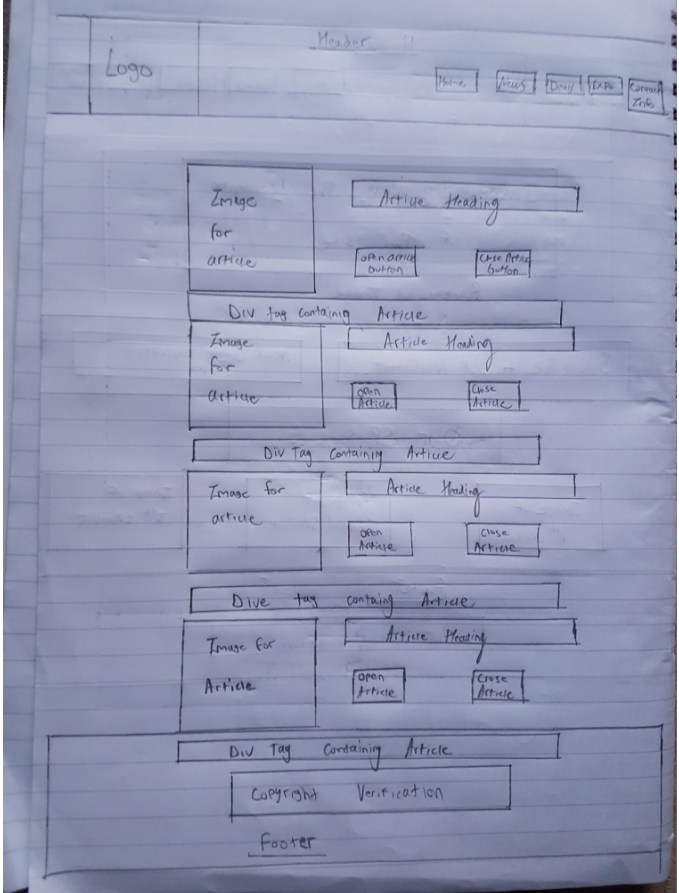 Header
Logo
Home News Contact
Info
Image
for
article
Article Heading
open article
button
Close Article
button
Div tag containig Article
Image
for
article
Article Heading
open
Article
Close
Article
Div Tag Containing Article
Image for
article
Article Heading
open
Article
Close
Article
Dive tag containg Article
Image for
Article
Article Heading
open
Article
Close
Article
Div Tag Containing Article
Copyright Verification
Footer